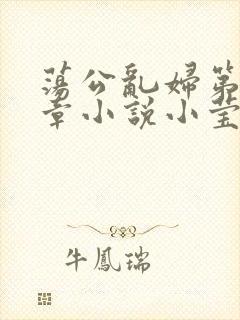 蕩公亂婦第
章小說小莹
牛鳳瑞